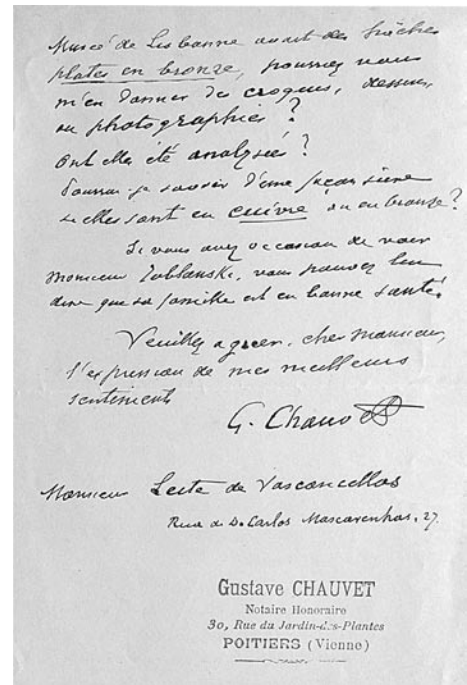 Musée de Lisbonne avait des flèches
plates en bronze, pourriez vous
m'en donner des croquis, dessins,
ou photographies ?
Ont elles été analysées ?
Pourrai-je savoir d'une façon sûre
si elles sont en cuivre ou en bronze ?
Si vous avez occasion de voir
Monsieur Zoblanski, vous pouvez lui
dire que sa famille est en bonne santé.
Veuillez agréer, cher monsieur,
l'expression de mes meilleurs
sentiments
G. Chauvet
Monsieur Leite de Vasconcellos
Rua de D. Carlos Mascarenhas, 27.
Gustave CHAUVET
Notaire Honoraire
30, Rue du Jardin-des-Plantes
POITIERS (Vienne)